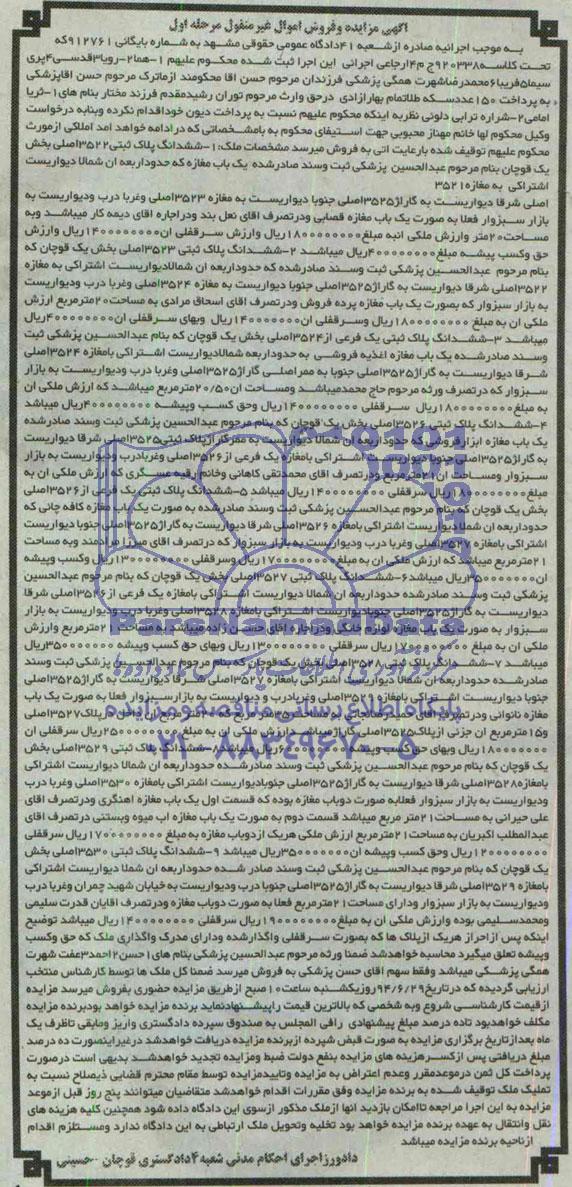 آگهی مزایده وفروش اموال غیر منقول مرحله اول
به موجب اجرائیه صادره ازشعبه ۴۱دادگاه عمومی حقوقی مشهد به شماره بایگانی ۹۱۲۷۶۱که
تحت کلاسه۹۲۰۳۳۸ج م۴ارجاعی اجرائی این اجرا ثبت شده محکوم علیهم ۱-هما۲-رویا۳قدسی۴پری
سیما۵فریبا۶محمدرضاشهرت همگی پزشکی فرزندان مرحوم حسن اقا محکومند ازماترک مرحوم حسن اقاپزشکی
به پرداخت ۱۵۰عددسکه طلاتمام بهارازادی درحق وارث مرحوم توران رشیدمقدم فرزند مختار بنام های۱-ثریا
امامی۲-شراره ترابی دلوئی نظربه اینکه محکوم علیهم نسبت به پرداخت دیون خوداقدام نکرده وبنابه درخواست
وکیل محکوم لها خانم مهناز محبوبی جهت استیفای محکوم به بامشخصاتی که درادامه خواهد امد املاکی ازمورث
محکوم علیهم توقیف شده بارعایت اتی به فروش میرسد مشخصات ملک:۱-ششدانگ پلاک ثبتی۳۵۲۲اصلی بخش
یک قوچان بنام مرحوم عبدالحسین پزشکی ثبت وسند صادرشده یک باب مغازه که حدوداربعه ان شمالا دیواریست
اشتراکی به مغازه۳۵۲۱
اصلی شرقا دیواریست به گاراژ۳۵۲۵اصلی جنوبا دیواریست به مغازه ۳۵۲۳اصلی وغربا درب ودیواریست به
بازار سبزوار فعلا به صورت یک باب مغازه قصابی ودرتصرف اقای نعل بند ودراجاره اقای دیمه کار میباشد وبه
مساحت۲۰متر وارزش ملکی انبه مبلغ۱۸۰۰۰۰۰۰۰۰ریال وارزش سرقفلی ان۱۴۰۰۰۰۰۰۰۰ریال وارزش
حق وکسب پیشه مبلغ۴۰۰۰۰۰۰۰۰ریال میباشد ۲-ششدانگ پلاک ثبتی ۳۵۲۳اصلی بخش یک قوچان که
بنام مرحوم عبدالحسین پزشکی ثبت وسند صادرشده که حدوداربعه ان شمالادیواریست اشتراکی به مغازه
۳۵۲۲اصلی شرقا دیواریست به گاراژ۳۵۲۵اصلی جنوبا دیواریست به مغازه ۳۵۲۴اصلی وغربا درب ودیواریست
به بازار سبزوار که بصورت یک باب مغازه پرده فروش ودرتصرف اقای اسحاق مرادی به مساحت۲۰مترمربع ارزش
ملکی ان به مبلغ ۱۸۰۰۰۰۰۰۰۰ریال وسرقفلی ان۱۴۰۰۰۰۰۰۰۰ریال وبهای سرقفلی ان۴۰۰۰۰۰۰۰۰ریال
میباشد ۳-ششدانگ پلاک ثبتی یک فرعی از۳۵۲۴اصلی بخش یک قوچان که بنام عبدالحسین پزشکی ثبت
وسند صادرشده یک باب مغازه اغذیه فروشی به حدوداربعه شمالادیواریست اشتراکی بامغازه ۳۵۲۴اصلی
شرقا دیواریست به گاراژ۳۵۲۵اصلی جنوبا به ممراصلی گاراژ۳۵۲۵اصلی وغربا درب ودیواریست به بازار
سبزوار که درتصرف ورثه مرحوم حاج محمدمیباشد ومساحت ان۲۰/۵۰مترمربع میباشد که ارزش ملکی ان
به مبلغ۱۸۰۰۰۰۰۰۰۰ریال سرقفلی ۱۴۰۰۰۰۰۰۰۰ریال وحق کسب وپیشه ۴۰۰۰۰۰۰۰۰ریال میباشد
۴-ششدانگ پلاک ثبتی ۳۵۲۶اصلی بخش یک قوچان که بنام مرحوم عبدالحسین پزشکی ثبت وسند صادرشده
یک باب مغازه ابزارفروشی که حدوداربعه ان شمالا دیواریست به ممرگاراژپلاک ثبتی۳۵۲۵اصلی شرقا دیواریست
به گاراژ۳۵۲۵اصلی جنوبا دیواریست اشتراکی بامغازه یک فرعی از۳۵۲۶اصلی وغربادرب ودیواریست به بازار
سبزوار ومساحت ان۲۱مترمربع ودرتصرف اقای محمدتقی کاهانی وخانم رقیه عسگری که ارزش ملکی ان به
مبلغ۱۸۰۰۰۰۰۰۰۰ریال سرقفلی ۱۴۰۰۰۰۰۰۰۰ریال میباشد ۵-ششدانگ پلاک ثبتی یک فرعی از۳۵۲۶اصلی
بخش یک قوچان که بنام مرحوم عبدالحسین پزشکی ثبت وسند صادرشده به صورت یک باب مغازه کافه چائی که
حدوداربعه ان شملا دیواریست اشتراکی بامغازه ۳۵۲۶اصلی شرقا دیواریست به گاراژ۳۵۲۵اصلی جنوبا دیواریست
اشتراکی بامغازه ۳۵۲۷اصلی وغربا درب ودیواریست به بازار سبزوار که درتصرف اقای میرزا مرادمند وبه مساحت
۲۱مترمربع میباشد که ارزش ملکی ان به مبلغ۱۷۰۰۰۰۰۰۰۰ریال وسرقفلی ۱۳۰۰۰۰۰۰۰۰ریال وکسب وپیشه
ان۳۵۰۰۰۰۰۰۰ریال میباشد۶-ششدانگ پلاک ثبتی ۳۵۲۷اصلی بخش یک قوچان که بنام مرحوم عبدالحسین
پزشکی ثبت وسند صادرشده حدوداربعه ان شمالا دیواریست اشتراکی بامغازه یک فرعی از۳۵۲۶اصلی شرقا
دیواریست به گاراژ۳۵۲۵اصلی جنوبادیواریست اشتراکی بامغازه ۳۵۲۸اصلی وغربا درب ودیواریست به بازار
سبزوار به صورت یک باب مغازه لوازم خانگی ودراجاره اقای حسین زاده میباشد به مساحت۲۱مترمربع وارزش
ملکی ان به مبلغ ۱۷۰۰۰۰۰۰۰۰ریال سرقفلی ۱۳۰۰۰۰۰۰۰۰ریال وبهای حق کسب وپیشه ۳۵۰۰۰۰۰۰۰ریال
میباشد ۷-ششدانگ پلاک ثبتی ۳۵۲۸اصلی بخش یک قوچان که بنام مرحوم عبدالحسین پزشکی ثبت وسند
صادرشده حدوداربعه ان شمالا دیواریست اشتراکی بامغازه ۳۵۲۷اصلی شرقا دیواریست به گاراژ۳۵۲۵اصلی
جنوبا دیواریست اشتراکی بامغازه ۳۵۲۹اصلی وغربادرب و دیواریست به بازارسبزوار فعلا به صورت یک باب
مغازه نانوائی ودرتصرف اقای حمیدرضا
و۱۵مترمربع ان جزئی ازپلاک۳۵۲۵اصلی گاراژمیباشد وارزش ملکی ان به مبلغ ۲۵۰۰۰۰۰۰۰۰ریال سرقفلی ان
۱۸۰۰۰۰۰۰۰۰ریال وبهای حق کسب وپیشه
یک قوچان که بنام مرحوم عبدالحسین پزشکی ثبت وسند صادرشده حدوداربعه ان شمالا دیواریست اشتراکی
بامغازه۳۵۲۸اصلی شرقا دیواریست به گاراژ۳۵۲۵اصلی جنوبادیواریست اشتراکی بامغازه ۳۵۳۰اصلی وغربا درب
ودیواریست به بازار سبزوار فعلابه صورت دوباب مغازه بوده که قسمت اول یک باب مغازه اهنگری ودرتصرف اقای
علی حیرانی به مساحت۲۱متر مربع میباشد قسمت دوم به صورت یک باب مغازه اب میوه وبستنی درتصرف اقای
عبدالمطلب اکبریان به مساحت۲۱مترمربع ارزش ملکی هریک ازدوباب مغازه به مبلغ ۱۷۰۰۰۰۰۰۰۰ریال سرقفلی
۱۲۰۰۰۰۰۰۰۰ریال وحق کسب وپیشه ان۳۵۰۰۰۰۰۰۰ریال میباشد ۹-ششدانگ پلاک ثبتی ۳۵۳۰اصلی بخش
یک قوچان که بنام مرحوم عبدالحسین پزشکی ثبت وسند صادر شده حدوداربعه ان شملا دیواریست اشتراکی
بامغازه ۳۵۲۹اصلی شرقا دیواریست به گاراژ۳۵۲۵اصلی جنوبا درب ودیواریست به خیابان شهید چمران وغربا درب
ودیواریست به بازار سبزوار ودارای مساحت۲۱مترمربع فعلا به صورت دوباب مغازه ودرتصرف اقایان قدرت سلیمی
ومحمدسلیمی بوده وارزش ملکی ان به مبلغ۱۹۰۰۰۰۰۰۰۰ریال سرقفلی ۱۴۰۰۰۰۰۰۰۰ریال میباشد توضیح
اینکه پس ازاحراز هریک ازپلاک ها که بصورت سرقفلی واگذارشده ودارای مدرک واگذاری ملک که حق وکسب
وپیشه تعلق میگیرد محاسبه خواهدشد ضمنا ورثه مرحوم عبدالحسین پزشکی بنام های۱حسن۲احمد۳عفت شهرت
همگی پزشکی میباشد وفقط سهم اقای حسن پزشکی به فروش میرسد ضمنا کل ملک ها توسط کارشناس منتخب
ارزیابی گردیده که درتاریخ۹۴/۶/۲۹روزیکشنبه ساعت۱۰صبح ازطریق مزایده حضوری بفروش میرسد مزایده
ازقیمت کارشناسی شروع وبه شخصی که بالاترین قیمت راپیشنهادنماید برنده مزایده خواهد بودبرنده مزایده
مکلف خواهدبود تاده درصد مبلغ پیشنهادی رافی المجلس به صندوق سپرده دادگستری واریز ومابقی تاظرف یک
ماه بعدازتاریخ برگزاری مزایده به صورت قبض شپرده ازبرنده مزایده دریافت خواهدشد درغیراینصورت ده درصد
مبلغ دریافتی پس ازکسرهزینه های مزایده بنفع دولت ضبط ومزایده تجدید خواهدشد بدیهی است درصورت
پرداخت کل ثمن درموعدمقرر وعدم اعتراض به مزایده وتاییدمزایده توسط مقام محترم قضایی ذیصلاح نسبت به
تملیک ملک توقیف شده به برنده مزایده وفق مقررات اقدام خواهدشد متقاضیان میتوانند پنج روز قبل ازموعد
مزایده به این اجرا مراجعه تاامکان بازدید انها ازملک مذکور ازسوی این دادگاه داده شود همچنین کلیه هزینه های
نقل وانتقال به عهده برنده مزایده خواهد بود تخلیه وتحویل ملک ارتباطی به این دادگاه ندارد ومستلزم اقدام
ازناحیه برنده مزایده میباشد
دادورزاجرای احکام مدنی شعبه۴دادگستری قوچان -حسینی
ParsNamadData
پایگاه اطلاع رسانی مناقصه و مزایده
۰۲۱-۸۸۳۴۹۶۷۰-۵